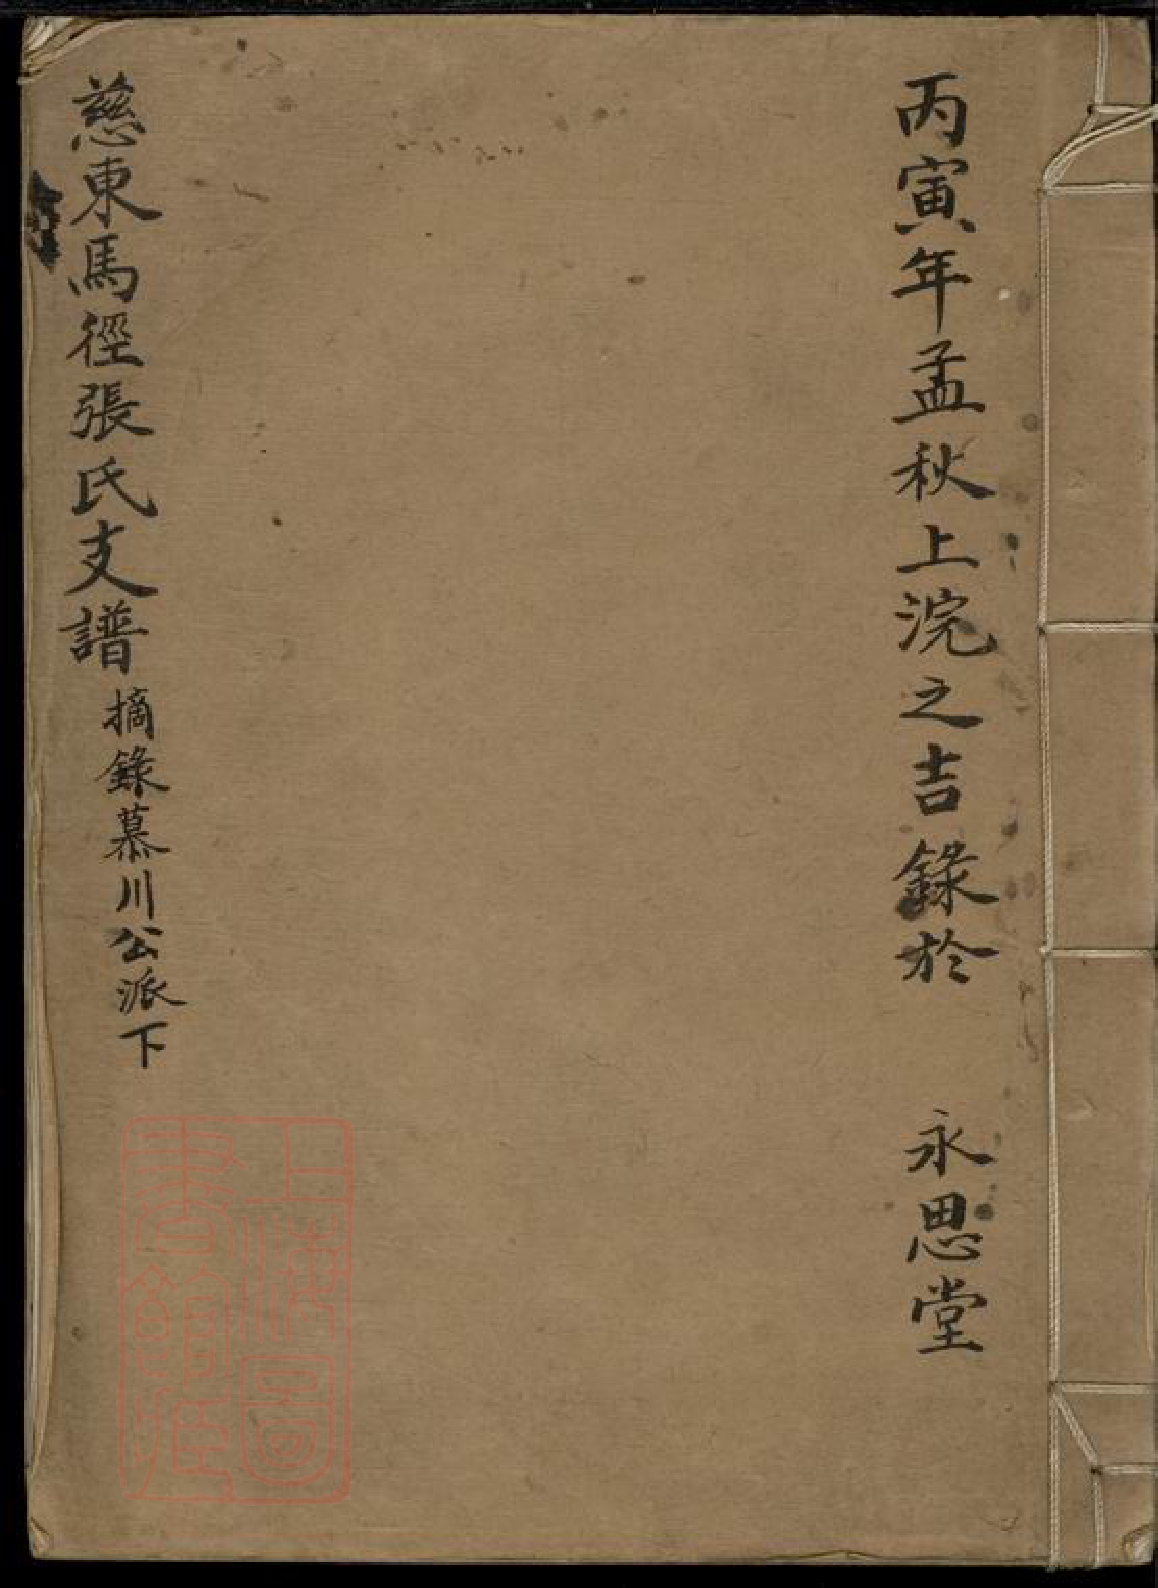 丙寅年孟秋上浣之吉錄於 永思堂
慈東馬徑張氏支譜 摘錄慕川公派下
上海圖書館藏